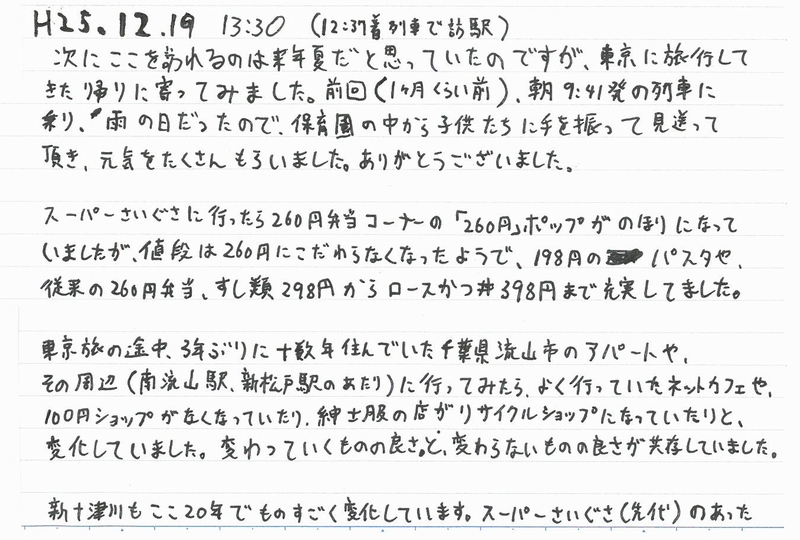 H25.12.19 13:30 (12:37着列車で訪駅)
次にここを訪れるのは来年夏だと思っていたのですが、東京に旅行して
きた帰りに寄ってみました。前回(1ヶ月くらい前)、朝9:41発の列車に
乗り、雨の日だったので、保育園の中から子供たちに手を振って見送って
頂き、元気をたくさんもらいました。ありがとうございました。
スーパーさいぐさに行ったら260円弁当コーナーの「260円」ポップがのぼりになって
いましたが、値段は260円にこだわらなくなったようで、198円のパスタや、
従来の260円弁当、すし類298円からロースかつ丼398円まで充実してました。
東京旅の途中、3年ぶりに十数年住んでいた千葉県流山市のアパートや、
その周辺(南流山駅、新松戸駅のあたり)に行ってみたら、よく行っていたネットカフェや、
100円ショップがなくなっていたり、紳士服の店がリサイクルショップになっていたりと、
変化していました。変わっていくものの良さと、変わらないものの良さが共存していました。
新十津川もここ20年でものすごく変化しています。スーパーさいぐさ(先代)のあった